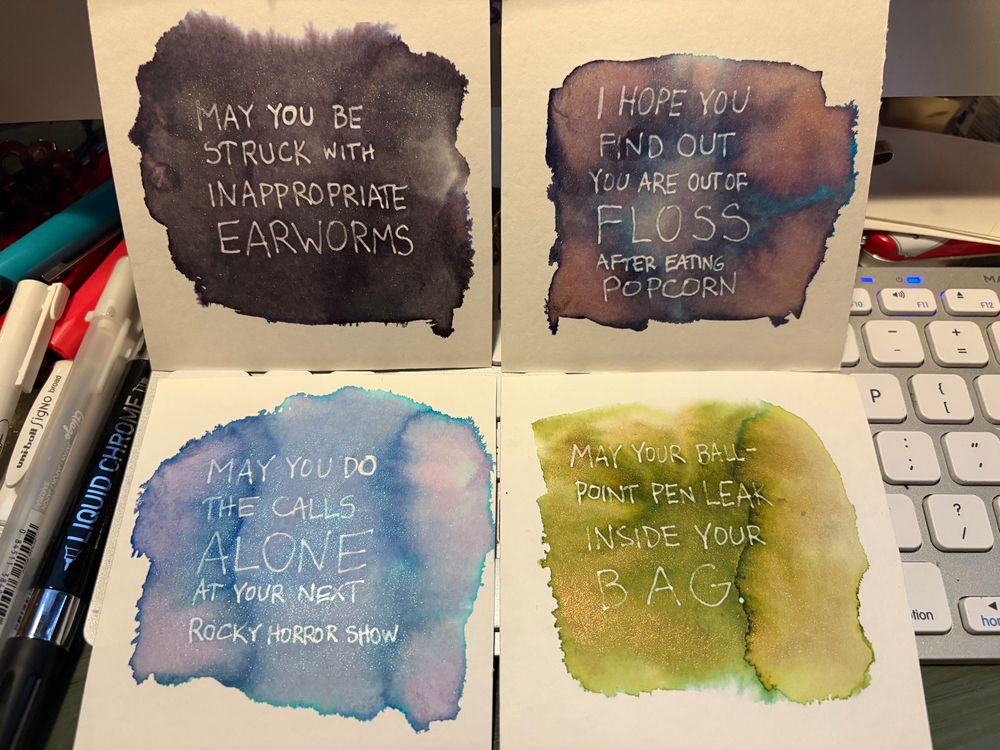 MAY YOU BE
STRUCK WITH
INAPPROPRIATE
EARWORMS
I HOPE YOU
FIND OUT
YOU ARE OUT OF
FLOSS
AFTER EATING
POPCORN
MAY YOU DO
THE CALLS
ALONE
AT YOUR NEXT
ROCKY HORROR SHOW
MAY YOUR BALL-
POINT PEN LEAK
INSIDE YOUR
BAG.
uni-ball Signo broad
LIQUID CHROME
F10
F11
F12
P
{
[
:
;
"
,
?
/
-
+
=